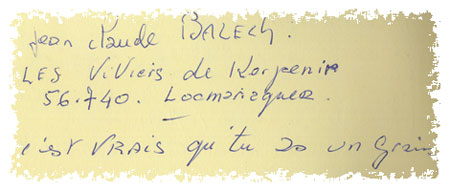 Jean Claude BALECH.
LES ViViers de Kerpenir
56.740. Locmariaquer.
c'est VRAIS qu'tu as un Grain